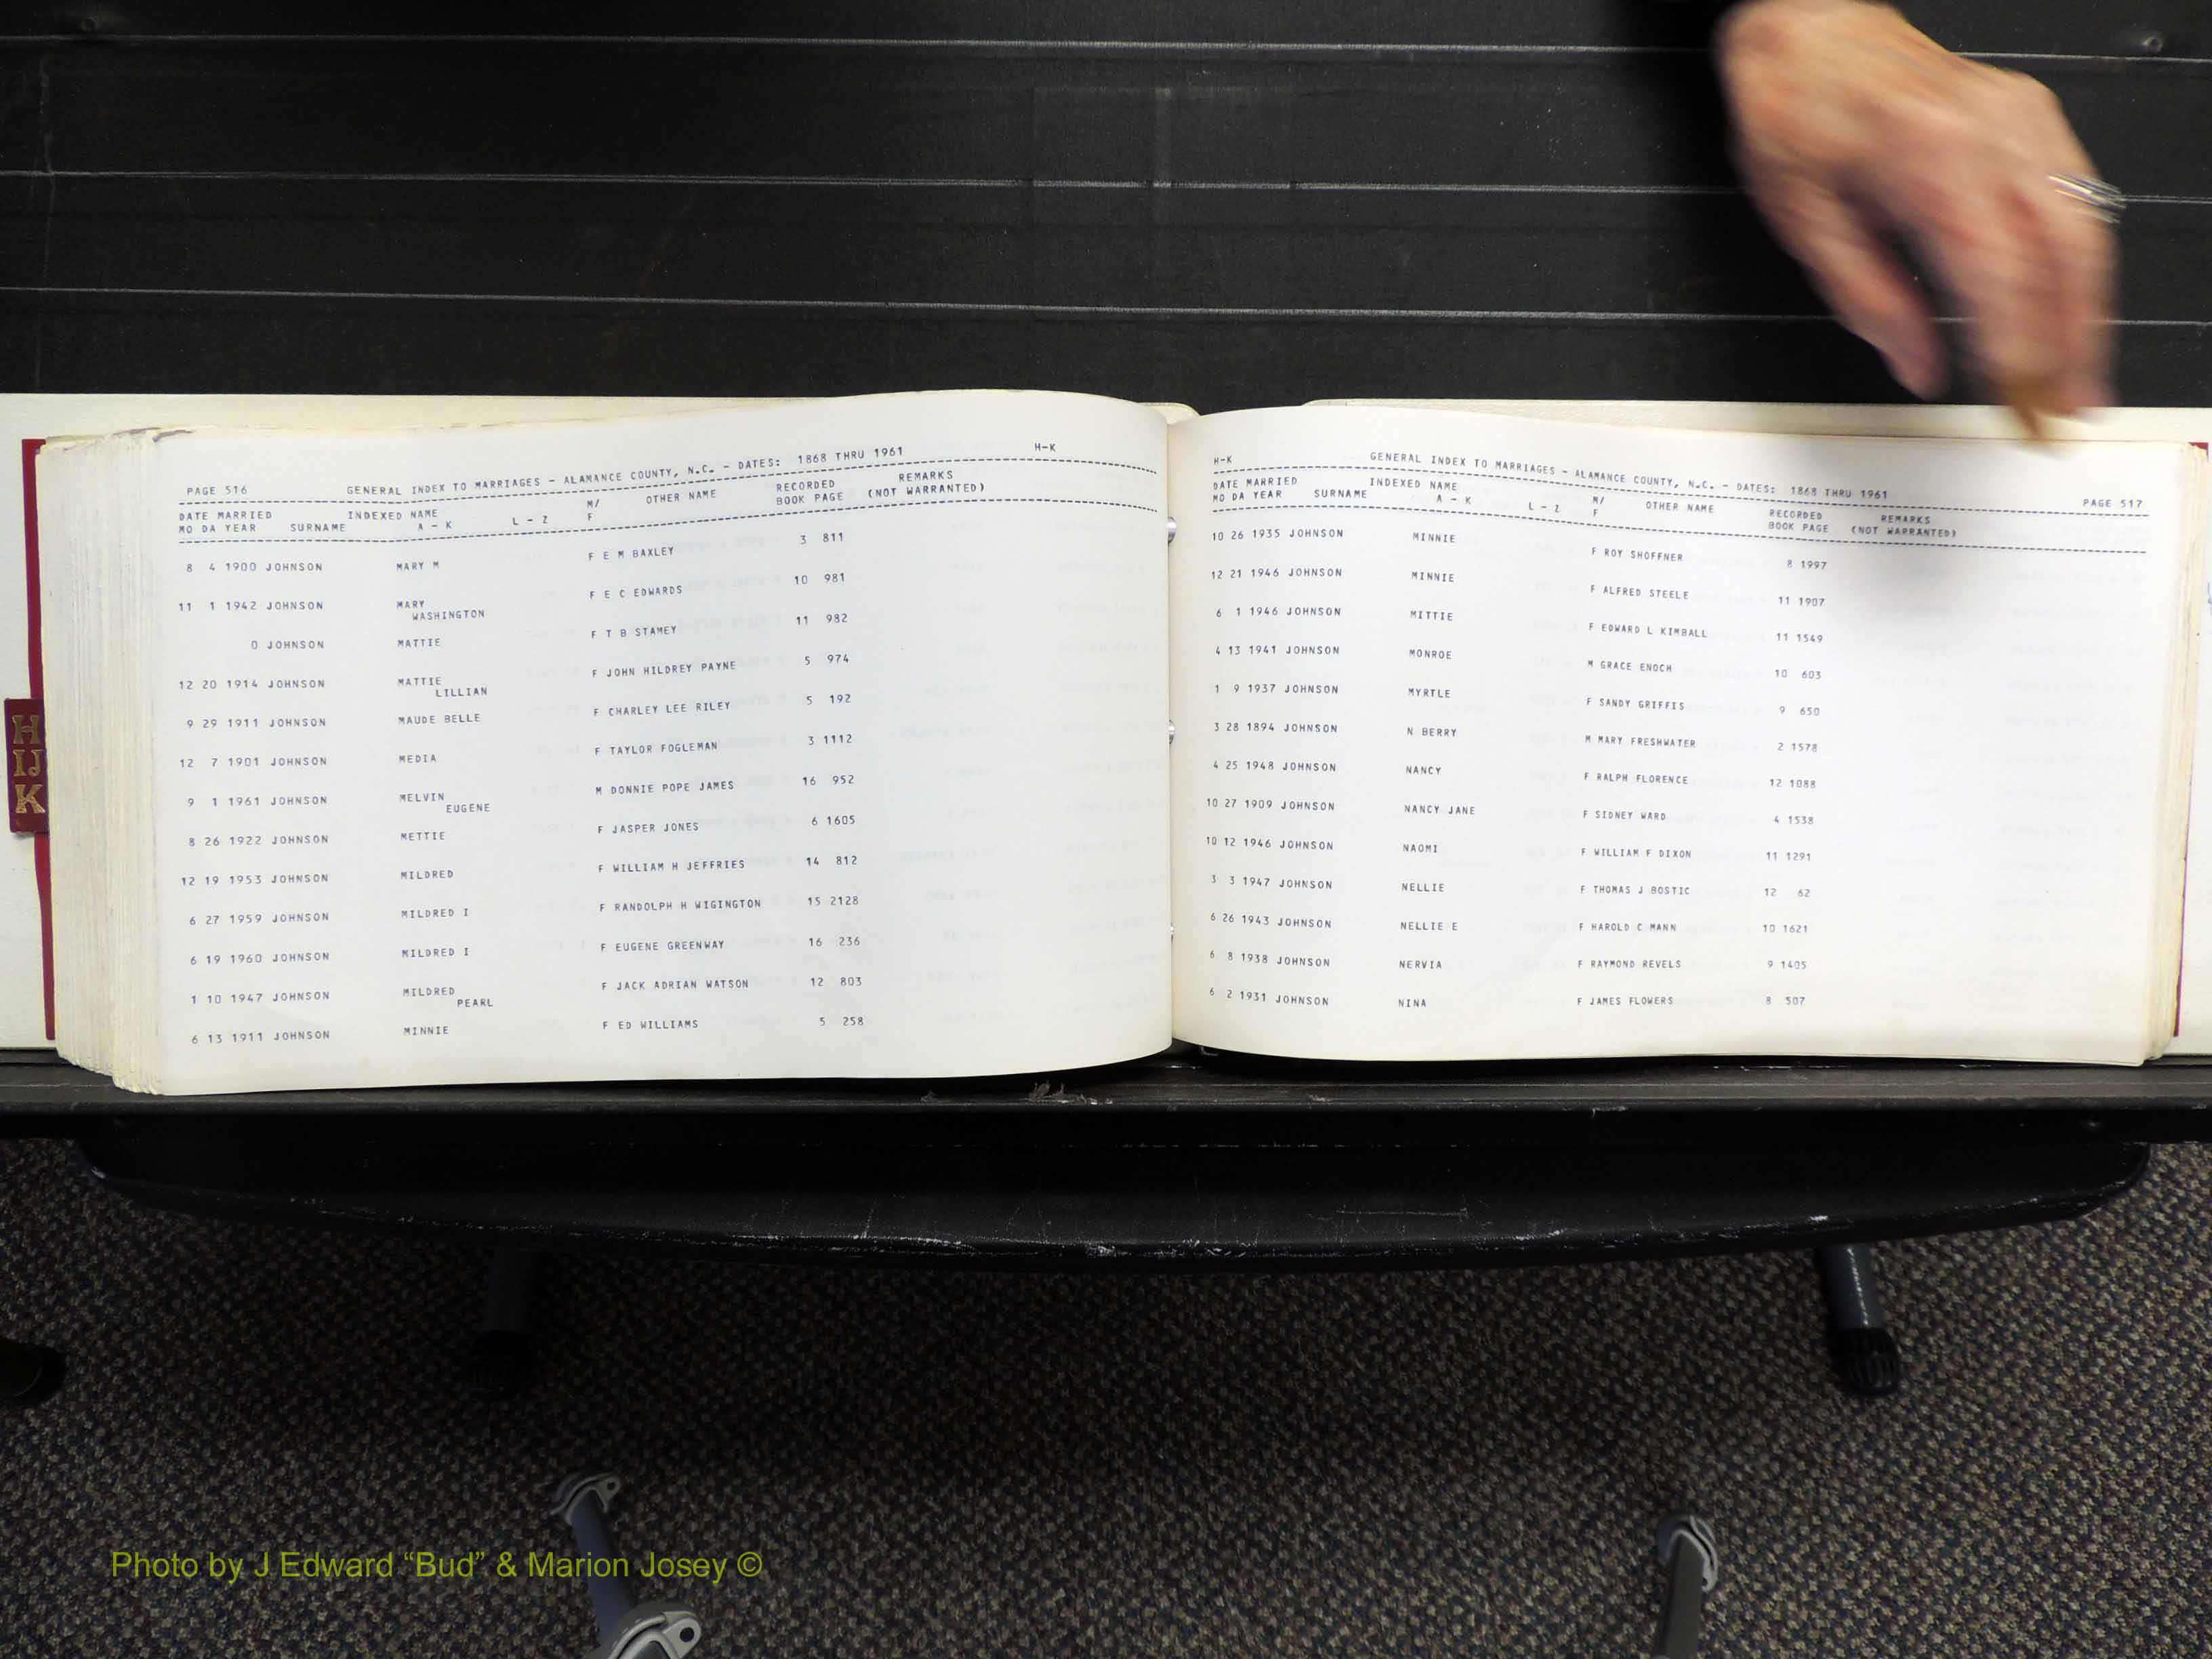 PAGE 516 GENERAL INDEX TO MARRIAGES - ALAMANCE COUNTY, N.C. - DATES: 1868 THRU 1961 H-K
DATE MARRIED INDEXED NAME M/ OTHER NAME RECORDED REMARKS
MO DA YEAR SURNAME A - K L - Z F BOOK PAGE (NOT WARRANTED)
8 4 1900 JOHNSON MARY M F E M BAXLEY 3 811
11 1 1942 JOHNSON MARY F E C EDWARDS 10 981
WASHINGTON
0 JOHNSON MATTIE F T B STAMEY 11 982
12 20 1914 JOHNSON MATTIE F JOHN HILDREY PAYNE 5 974
LILLIAN
9 29 1911 JOHNSON MAUDE BELLE F CHARLEY LEE RILEY 5 192
12 7 1901 JOHNSON MEDIA F TAYLOR FOGLEMAN 3 1112
9 1 1961 JOHNSON MELVIN M DONNIE POPE JAMES 16 952
EUGENE
8 26 1922 JOHNSON METTIE F JASPER JONES 6 1605
12 19 1953 JOHNSON MILDRED F WILLIAM H JEFFRIES 14 812
6 27 1959 JOHNSON MILDRED I F RANDOLPH H WIGINGTON 15 2128
6 19 1960 JOHNSON MILDRED I F EUGENE GREENWAY 16 236
1 10 1947 JOHNSON MILDRED F JACK ADRIAN WATSON 12 803
PEARL
6 13 1911 JOHNSON MINNIE F ED WILLIAMS 5 258
H-K GENERAL INDEX TO MARRIAGES - ALAMANCE COUNTY, N.C. - DATES: 1868 THRU 1961 PAGE 517
DATE MARRIED INDEXED NAME M/ OTHER NAME RECORDED REMARKS
MO DA YEAR SURNAME A - K L - Z F BOOK PAGE (NOT WARRANTED)
10 26 1935 JOHNSON MINNIE F ROY SHOFFNER 8 1997
12 21 1946 JOHNSON MINNIE F ALFRED STEELE 11 1907
6 1 1946 JOHNSON MITTIE F EDWARD L KIMBALL 11 1549
4 13 1941 JOHNSON MONROE M GRACE ENOCH 10 603
1 9 1937 JOHNSON MYRTLE F SANDY GRIFFIS 9 650
3 28 1894 JOHNSON N BERRY M MARY FRESHWATER 2 1578
4 25 1948 JOHNSON NANCY F RALPH FLORENCE 12 1088
10 27 1909 JOHNSON NANCY JANE F SIDNEY WARD 4 1538
10 12 1946 JOHNSON NAOMI F WILLIAM F DIXON 11 1291
3 3 1947 JOHNSON NELLIE F THOMAS J BOSTIC 12 62
6 26 1943 JOHNSON NELLIE E F HAROLD C MANN 10 1621
6 8 1938 JOHNSON NERVIA F RAYMOND REVELS 9 1405
6 2 1931 JOHNSON NINA F JAMES FLOWERS 8 507
H
IJ
K
Photo by J Edward “Bud” & Marion Josey ©